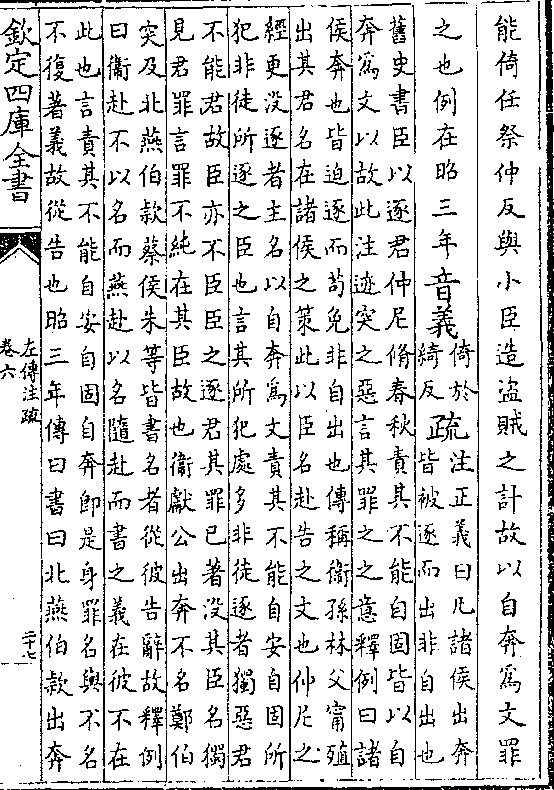 能倚任祭仲反與小臣造盗賊之計故以自奔為文罪
之也例在昭三年音義倚於綺反疏注正義曰凡諸侯出奔皆被逐而出非自出也
舊史書臣以逐君仲尼脩春秋責其不能自固皆以自
奔為文以故此注迹突之惡言其罪之之意釋例曰諸
侯奔也皆迫逐而苟免非自出也傳稱衛孫林父甯殖
出其君名在諸侯之策此以臣名赴告之文也仲尼之
經更没逐者主名以自奔為文責其不能自安自固所
犯非徒所逐之臣也言其所犯處多非徒逐者獨惡君
不能君故臣亦不臣臣之逐君其罪已著没其臣名獨
見君罪言罪不純在其臣故也衛獻公出奔不名鄭伯
突及北燕伯款蔡侯朱等皆書名者從彼告辭故釋例
曰衛赴不以名而燕赴以名隨赴而書之義在彼不在
此也言責其不能自安自固自奔即是身罪名與不名
不復著義故從告也昭三年傳曰書曰北燕伯款出奔
欽定四庫全書
左傳注疏
卷六
二十七